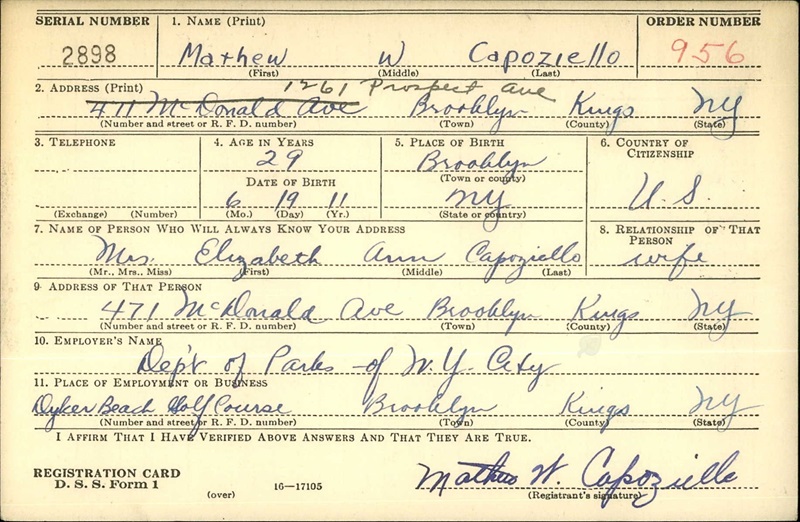 SERIAL NUMBER 1. NAME (Print) ORDER NUMBER
2898 Mathew W Capoziello 956
(First) (Middle) (Last)
2. ADDRESS (Print) 1261 Prospect Ave
471 McDonald Ave Brooklyn Kings NY
(Number and street or R. F. D. number) (Town) (County) (State)
3. TELEPHONE 4. AGE IN YEARS 5. PLACE OF BIRTH 6. COUNTRY OF CITIZENSHIP
29 Brooklyn
(Town or county)
DATE OF BIRTH
6 19 11 NY U. S.
(Exchange) (Number) (Mo.) (Day) (Yr.) (State or country)
7. NAME OF PERSON WHO WILL ALWAYS KNOW YOUR ADDRESS 8. RELATIONSHIP OF THAT PERSON
Mrs. Elizabeth Ann Capoziello wife
(Mr., Mrs., Miss) (First) (Middle) (Last)
9. ADDRESS OF THAT PERSON
471 McDonald Ave Brooklyn Kings NY
(Number and street or R. F. D. number) (Town) (County) (State)
10. EMPLOYER'S NAME
Dep't of Parks - of N. Y. City
11. PLACE OF EMPLOYMENT OR BUSINESS
Dyker Beach Golf Course Brooklyn Kings NY
(Number and street or R. F. D. number) (Town) (County) (State)
I AFFIRM THAT I HAVE VERIFIED ABOVE ANSWERS AND THAT THEY ARE TRUE.
REGISTRATION CARD
D. S. S. Form 1 (over) 16—17105 Mathew W. Capoziello
(Registrant's signature)